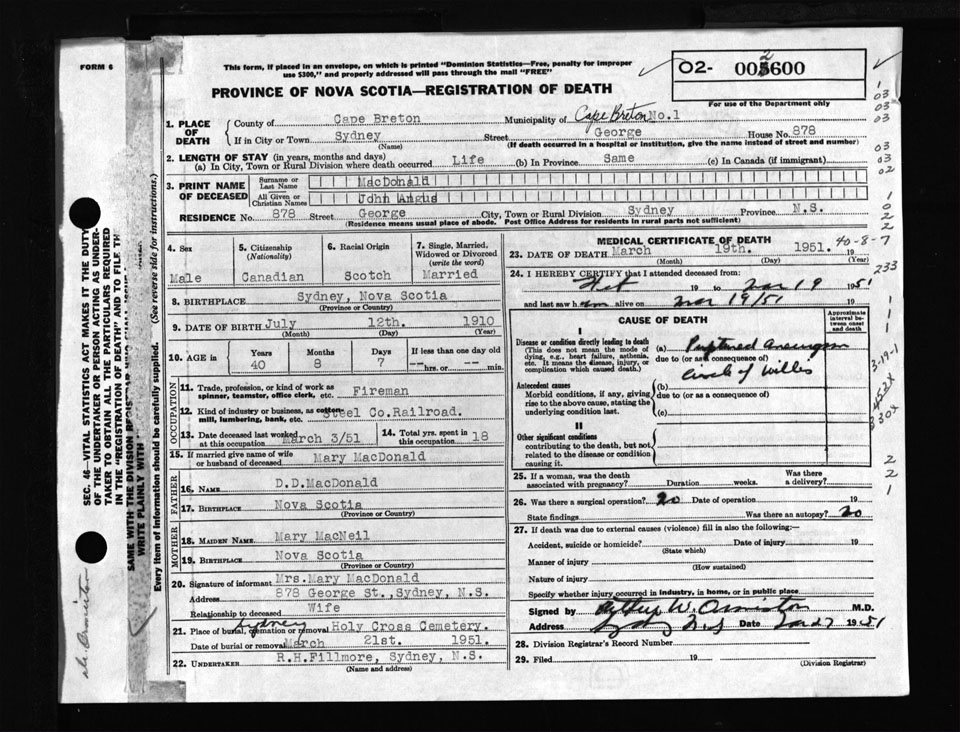 FORM 6
This form, if placed in an envelope, on which is printed "Dominion Statistics—Free, penalty for improper
use $300," and properly addressed will pass through the mail "FREE"
O2- 005600
2
For use of the Department only
PROVINCE OF NOVA SCOTIA—REGISTRATION OF DEATH
1. PLACE OF DEATH
County of Cape Breton Municipality of Cape Breton No.1
If in City or Town Sydney Street George House No. 878
(Name) (If death occurred in a hospital or institution, give the name instead of street and number)
2. LENGTH OF STAY (in years, months and days)
(a) In City, Town or Rural Division where death occurred Life (b) In Province Same (c) In Canada (if immigrant)
3. PRINT NAME OF DECEASED
Surname or Last Name MacDonald
All Given or Christian Names John Angus
RESIDENCE No. 878 Street George City, Town or Rural Division Sydney Province N.S.
(Residence means usual place of abode. Post Office Address for residents in rural parts not sufficient)
4. Sex
Male
5. Citizenship
(Nationality)
Canadian
6. Racial Origin
Scotch
7. Single, Married,
Widowed or Divorced
(write the word)
Married
8. BIRTHPLACE Sydney, Nova Scotia
(Province or Country)
9. DATE OF BIRTH July 12th. 1910
(Month) (Day) (Year)
10. AGE in
Years Months Days If less than one day old
40 8 7 -- hrs. or -- min.
OCCUPATION
11. Trade, profession, or kind of work as
spinner, teamster, office clerk, etc. Fireman
12. Kind of industry or business, as cotton
mill, lumbering, bank, etc. Steel Co.Railroad.
13. Date deceased last worked
at this occupation March 3/51
14. Total yrs. spent in
this occupation 18
15. If married give name of wife
or husband of deceased Mary MacDonald
FATHER
16. NAME D.D.MacDonald
17. BIRTHPLACE Nova Scotia
(Province or Country)
MOTHER
18. MAIDEN NAME Mary MacNeil
19. BIRTHPLACE Nova Scotia
(Province or Country)
20. Signature of informant Mrs.Mary MacDonald
Address 878 George St.,Sydney, N.S.
Relationship to deceased Wife
Sydney
21. Place of burial, cremation or removal Holy Cross Cemetery.
Date of burial or removal March 21st. 1951.
22. UNDERTAKER R.H.Fillmore, Sydney, N.S.
(Name and address)
MEDICAL CERTIFICATE OF DEATH
40-8-7
23. DATE OF DEATH March 19th. 1951.
(Month) (Day) (Year)
24. I HEREBY CERTIFY that I attended deceased from:
19 to Mar 19 1951
and last saw h im alive on Mar 19/51 19
CAUSE OF DEATH
Approximate interval between onset and death
I
Disease or condition directly leading to death
(This does not mean the mode of
dying, e.g., heart failure, asthenia,
etc. It means the disease, injury, or
complication which caused death.)
(a) Ruptured Aneurysm
due to (or as consequence of)
Circle of Willis
Antecedent causes
Morbid conditions, if any, giving
rise to the above cause, stating the
underlying condition last.
(b)
due to (or as a consequence of)
(c)
II
Other significant conditions
contributing to the death, but not
related to the disease or condition
causing it.
25. If a woman, was the death
associated with pregnancy? Duration weeks. Was there
a delivery?
26. Was there a surgical operation? no Date of operation 19
State findings Was there an autopsy? no
27. If death was due to external causes (violence) fill in also the following:—
Accident, suicide or homicide? Date of injury 19
(State which)
Manner of injury
(How sustained)
Nature of injury
Specify whether injury occurred in industry, in home, or in public place
Signed by Arthur W. Ormiston M.D.
Address Sydney N.S Date Mar 27 1951
28. Division Registrar's Record Number
29. Filed 19
(Division Registrar)
SEC. 46—VITAL STATISTICS ACT MAKES IT THE DUTY
OF THE UNDERTAKER OR PERSON ACTING AS UNDER-
TAKER TO OBTAIN ALL THE PARTICULARS REQUIRED
IN THE "REGISTRATION OF DEATH" AND TO FILE TH
SAME WITH THE DIVISION REGISTRAR
WRITE PLAINLY WITH
Every item of information should be carefully supplied. (See reverse side for instructions.)
Dr. Ormiston
1
03
03
03
03
03
02
1
0
2
2
233
1
1
1
3-19-1
330X
2
2
1